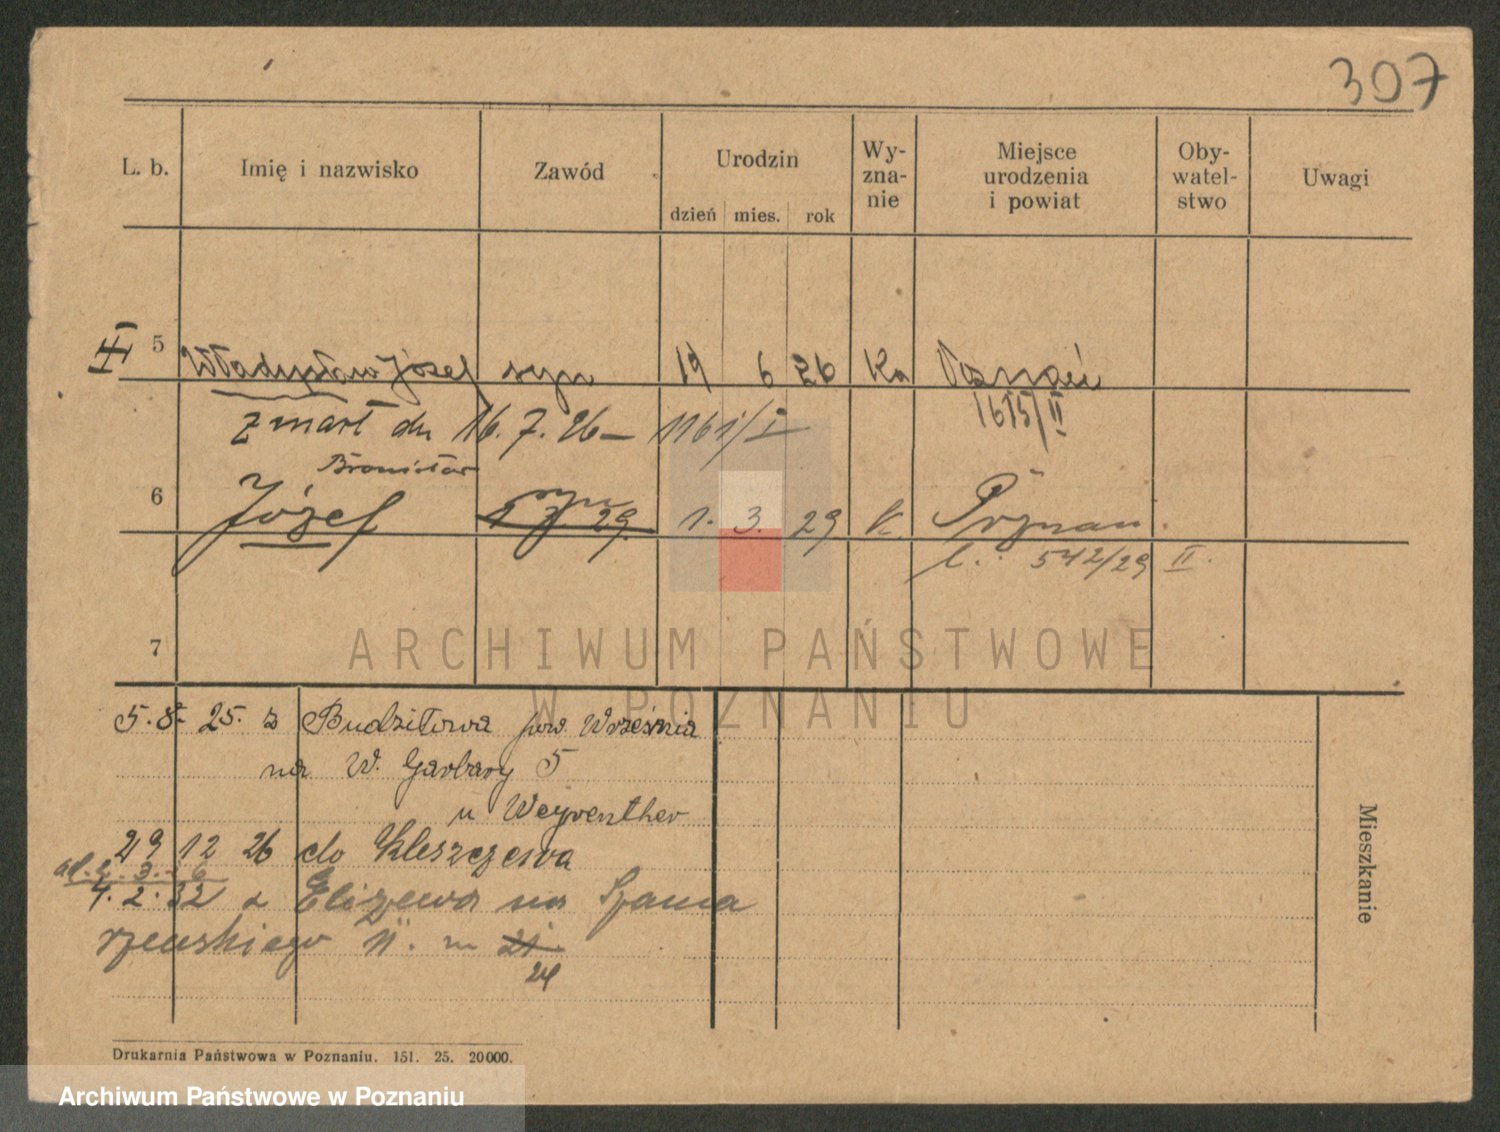 307
L. b. Imię i nazwisko Zawód Urodzin dzień mies. rok Wy-zna-nie Miejsce urodzenia i powiat Oby-watel-stwo Uwagi
5 Władysław Józef syn 19 6 26 Ka Poznań
1615/II
zmarł dn 16. 7. 26 — 1161/I
Bronisław
6 Józef syn 1. 3. 29 k. Poznań
L. 542/29 II.
7
ARCHIWUM PAŃSTWOWE
W POZNANIU
5. 8. 25. z Budziłowa pow. Września
na W. Garbary 5
u Weyrenther
29 12 26 do Kleszczewa
4. 2. 32 z Elizewa na Szama
rzewskiego 11. m 21
24
Mieszkanie
Drukarnia Państwowa w Poznaniu. 151. 25. 20000.
Archiwum Państwowe w Poznaniu